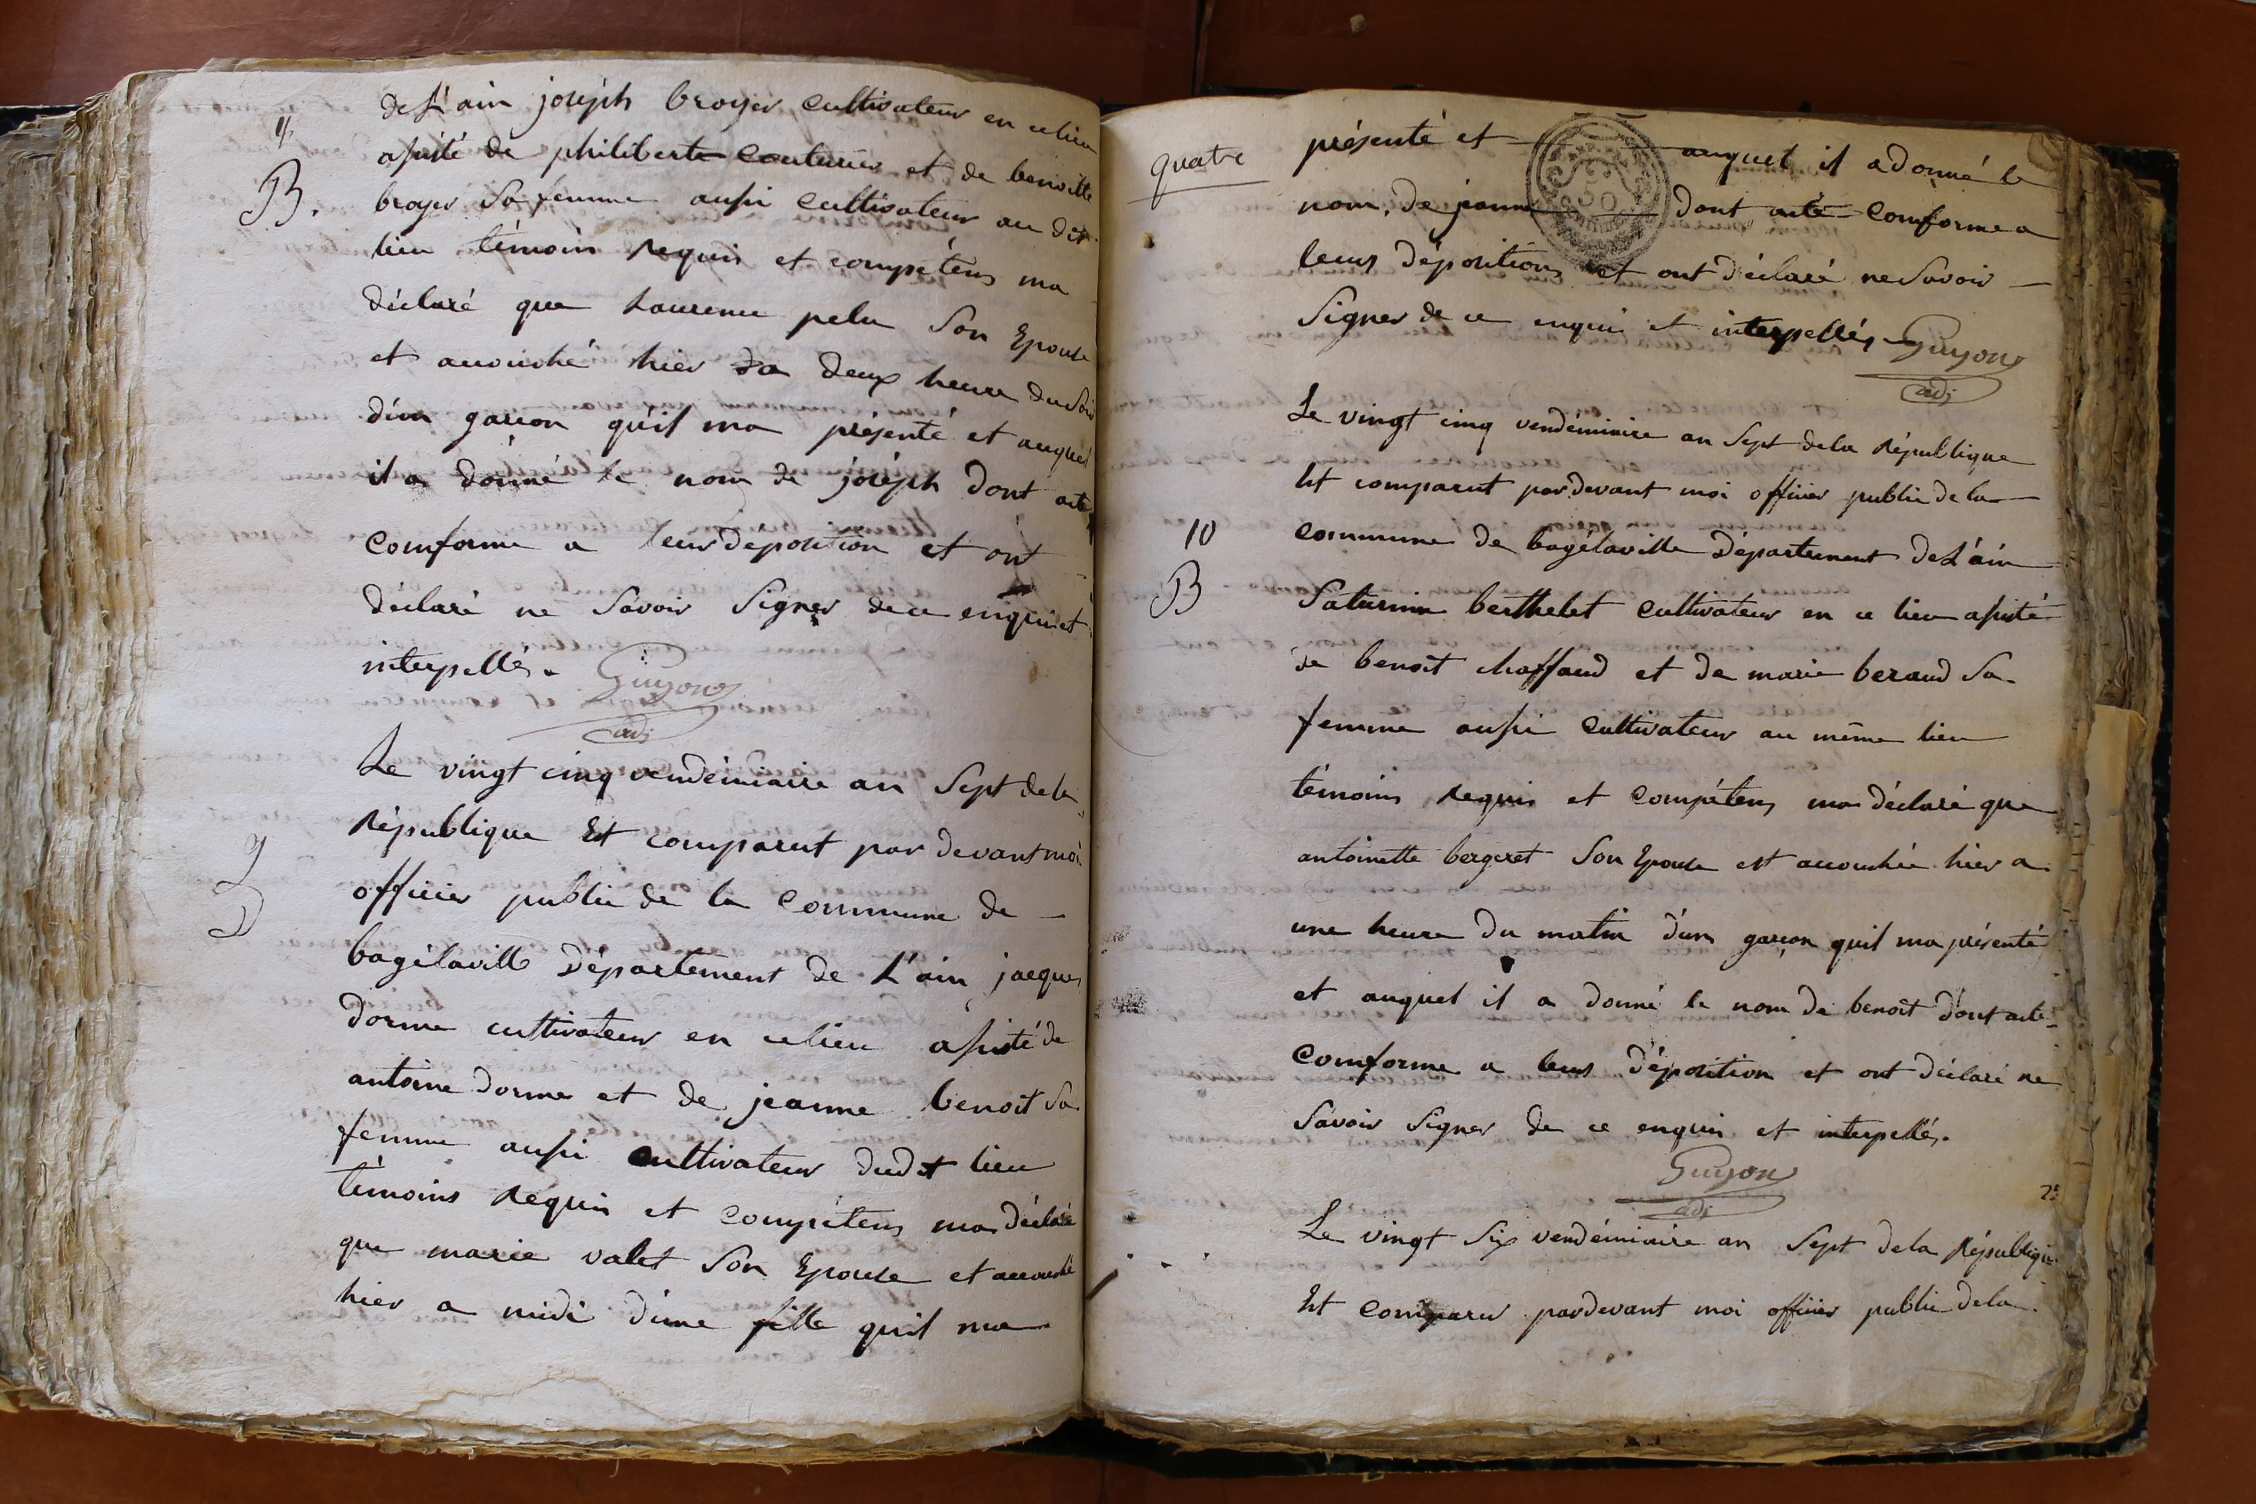 de L'ain joseph broyer cultivateur en ce lieu
B.
assisté de philiberte couturier et de benoitte
broyer sa femme aussi cultivateur au dit
lieu témoin requis et compétens ma
déclaré que Laurence pelu son Epouse
et accouché hier a deux heure du soir
d'un garcon qu'il ma présenté et auquel
il a donné le nom de joseph dont acte
comforme a leur déposition et ont
déclaré ne savoir signer de ce enquis et
interpellés. Guyon
adj
Le vingt cinq vendémiaire an sept de la
République Est comparut par devant moi
9
D
officier public de la commune de
bagélaville Département de L'ain jacques
dorme cultivateur en ce lieu assisté de
antoine dorme et de jeanne benoit sa
femme aussi cultivateur dudit lieu
témoins requis et compétens ma déclaré
que marie valet son Epouse et accouché
hier a midi d'une fille quil ma
quatre
présenté et auquel il a donné le
50
nom de janne dont acte comforme a
leurs dépositions et ont déclaré ne savoir
signer de ce enquis et interpellés Guyon
adj
Le vingt cinq vendéminire an sept de la République
Est comparut par devant moi officier public de la
10
B
commune de bagélaville Département de L'ain
Saturnin berthelet cultivateur en ce lieu assisté
de benoit chaffaud et de marie beraud sa
femme aussi cultivateur au même lieu
témoins requis et compétens ma déclaré que
antoinette bergeret son Epouse est accouchée hier a
une heure du matin d'un garçon quil ma présenté
et auquel il a donné le nom de benoît dont acte
comforme a leurs déposition et ont déclaré ne
savoir signer de ce enquis et interpellés.
Guyon
adj
Le vingt six vendéminire an sept de la République
Est comparu pardevant moi officier public de la